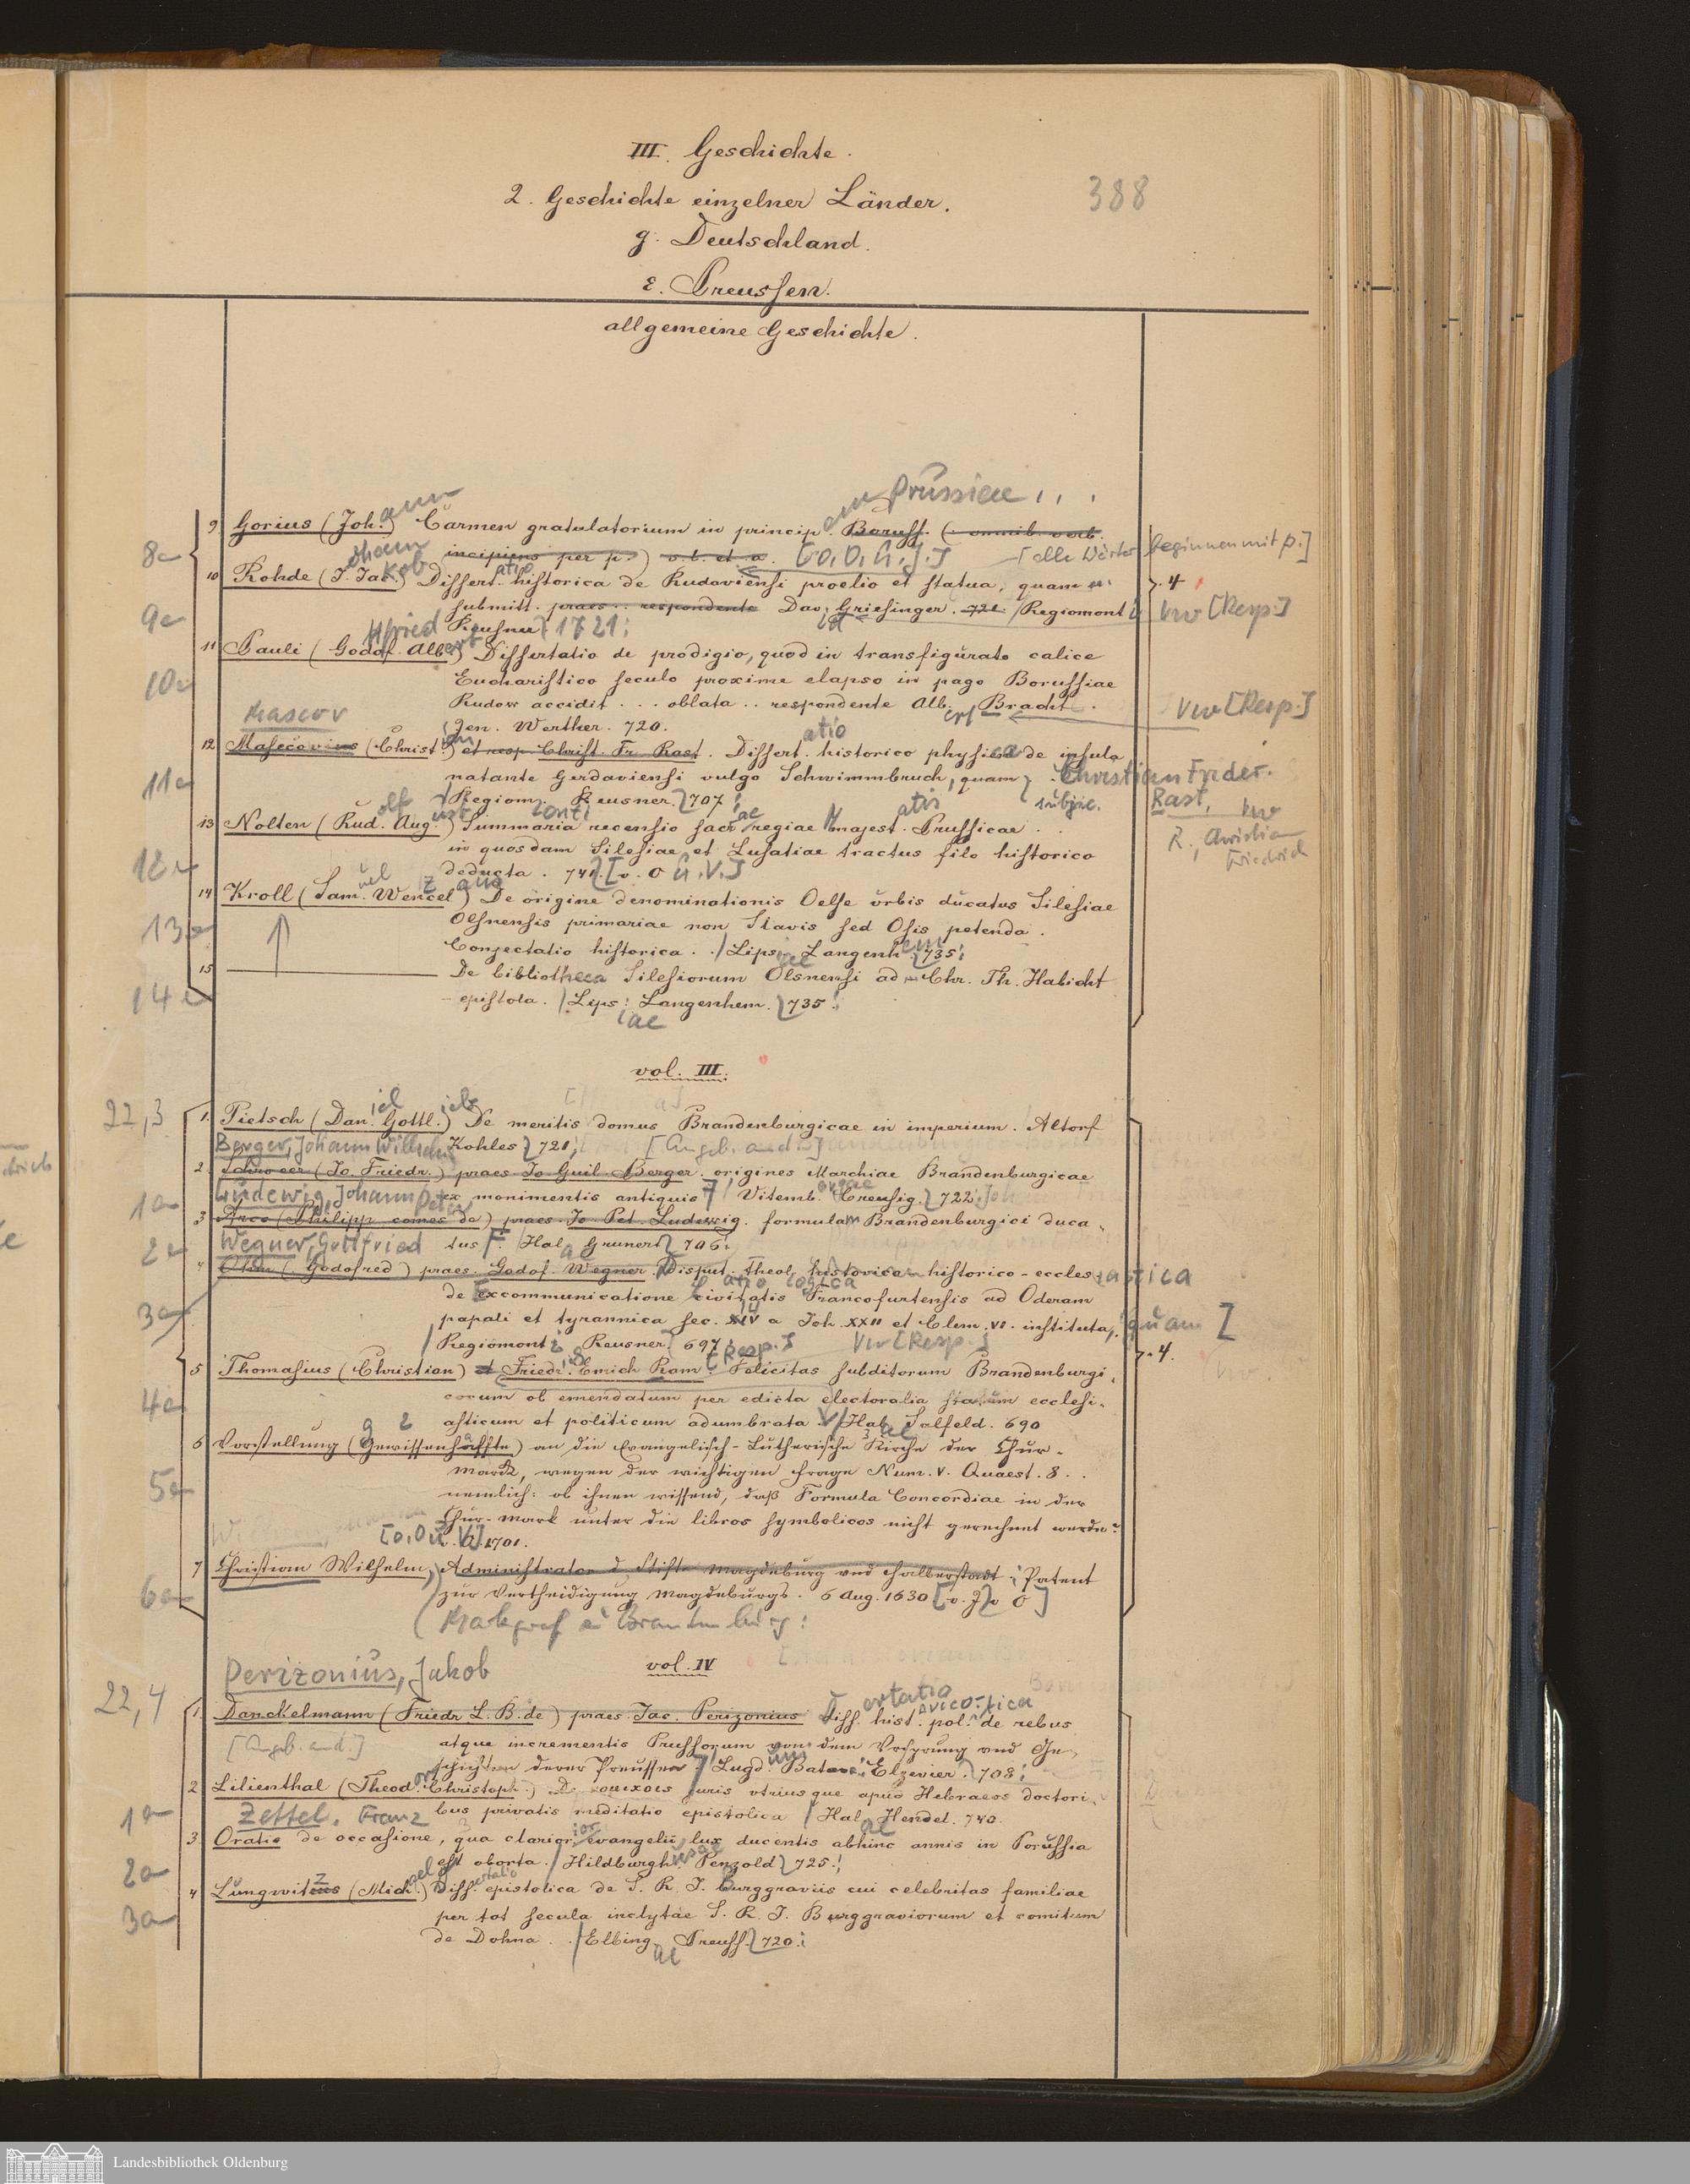 III. Geschichte.
2. Geschichte einzelner Länder.
388
g. Deutschland.
ε. Preussen.
allgemeine Geschichte.
Prussiae . . .
9 Gorius (Joh.) ann Carmen gratulatorium in princip. Boruss. (omnib. verb.
8a incipiens per p.) s. l. et a. [o. O. u. J.] [alle Wörter beginnen mit P.]
10 Rohde (J. Jac.) ohann kob Dissert. atio historica de Rudaviensi proelio et statua, quam
4
9a submitt. praes. .. respondente Dav. id Griesinger. 721. Regiomont i Vw [Resp.]
Reusner 1721;
11 Pauli (Godof. Alb.) ttfried ert Dissertatio de prodigio, quod in transfigurato calice
10a Eucharistico seculo proxime elapso in pago Borussiae
Rudow accidit . . . oblata . . respondente Alb. ert Bracht. Vw [Resp.]
Mascov
Jen. Werther. 720.
12. Masecovius (Christ.) ian et resp. Christ. Fr. Rast. Dissert. atio historico physica de insula
11a natante Gerdaviensi vulgo Schwimmbruch, quam Christian Frider.
Regiom. Reusner. 707; subjic. Rast, Vw
R., Christian Friedrich
13 Nolten (Rud. Aug.) olf ust Summaria recensio sacr ae regiae majest. atis Prussicae . .
in quosdam Silesiae et Lusatiae tractus filo historico
12a deducta. 741. [v. O u. V.]
14 Kroll (Sam. Wencel) uel z aus De origine denominationis Oelse urbis ducatus Silesiae
13a Olsnensis primariae non Slavis sed Osis petenda.
Conjectatio historica. . Lips iae Langenh em 735;
15 De bibliotheca Silesiorum Olsnensi ad Chr. Th. Habicht
14a epistola. Lips: iae Langenhem. 735.
vol. III.
22,3
1. Pietsch (Dan. Gottl.) iel ieb De meritis domus Brandenburgicae in imperium. Altorf
Berger, Johann Wilhelm Kohles 721; [Angeb. and.]
2 Schroeer (Jo. Friedr.) praes. Jo. Guil. Berger. origines Marchiae Brandenburgicae
1a Ludewig, Johann Peter ex monimentis antiquis Vitemb. ergae Creusig. 722;
3 Arco (Philipp comes de) praes. Jo. Pet. Ludewig. formulam Brandenburgici duca-
2a Wegner, Gottfried tus. Hal. ae Grunert 706;
4 (Godofred) praes. Godof. Wegner Disput. atio theol. ogica historico-ecclesiastica
de Excommunicatione Civitatis Francofurtensis ad Oderam
3a papali et tyrannica sec. XIV a Joh. XXII et Clem. VI. instituta, quam
Regiomont i Reusner 697; [Resp.] Vw [Resp.]
4.
5 Thomasius (Christian) et Friedr. Emich Ram Felicitas subditorum Brandenburgi-
4a corum ob emendatum per edicta electoralia statum ecclesi-
asticum et politicum adumbrata. Hal. ae Salfeld. 690
6 Vorstellung (Gewissenhaffte) an die Evangelisch-Lutherische Kirche der Chur-
5a marck, wegen der wichtigen Frage Num. V. Quaest. 8. .
nemlich: ob ihnen wissend, daß Formula Concordiae in der
Chur-mark unter die libros symbolicos nicht gerechnet werde?
[o. O u V] 1701.
7 Christian Wilhelm, Administrator d. Stifte Magdeburg und Halberstadt; Patent
6a zur Vertheidigung Magdeburgs. 6 Aug. 1630 [v. J u O]
vol. IV
22,4
Perizonius, Jakob
1. Danckelmann (Friedr. L. B. de) praes. Jac. Perizonius Diss. ertatio hist. orico- pol. itica de rebus
[Angeb. and.] atque incrementis Prussorum von dem Vrsprung und Ge-
schichten derer Preussen. Lugd. Elzevier. 708;
2 Lilienthal (Theod. Christoph.) or De juris utriusque apud Hebraeos doctori-
1a Zettel, Franz bus privatis meditatio epistolica Hal. ae Hendel. 740.
3. Oratio de occasione, qua clarior evangelii lux ducentis abhinc annis in Porussia
2a est oborta. Hildburgh. usae Penzold 725.;
4 Lungwitzius (Mich.) ael Diss. ertatio epistolica de S. R. I. Burggraviis cui celebritas familiae
3a per tot secula inclytae S. R. I. Burggraviorum et comitum
de Dohna. . Elbing ae Preuss. 720.
Landesbibliothek Oldenburg